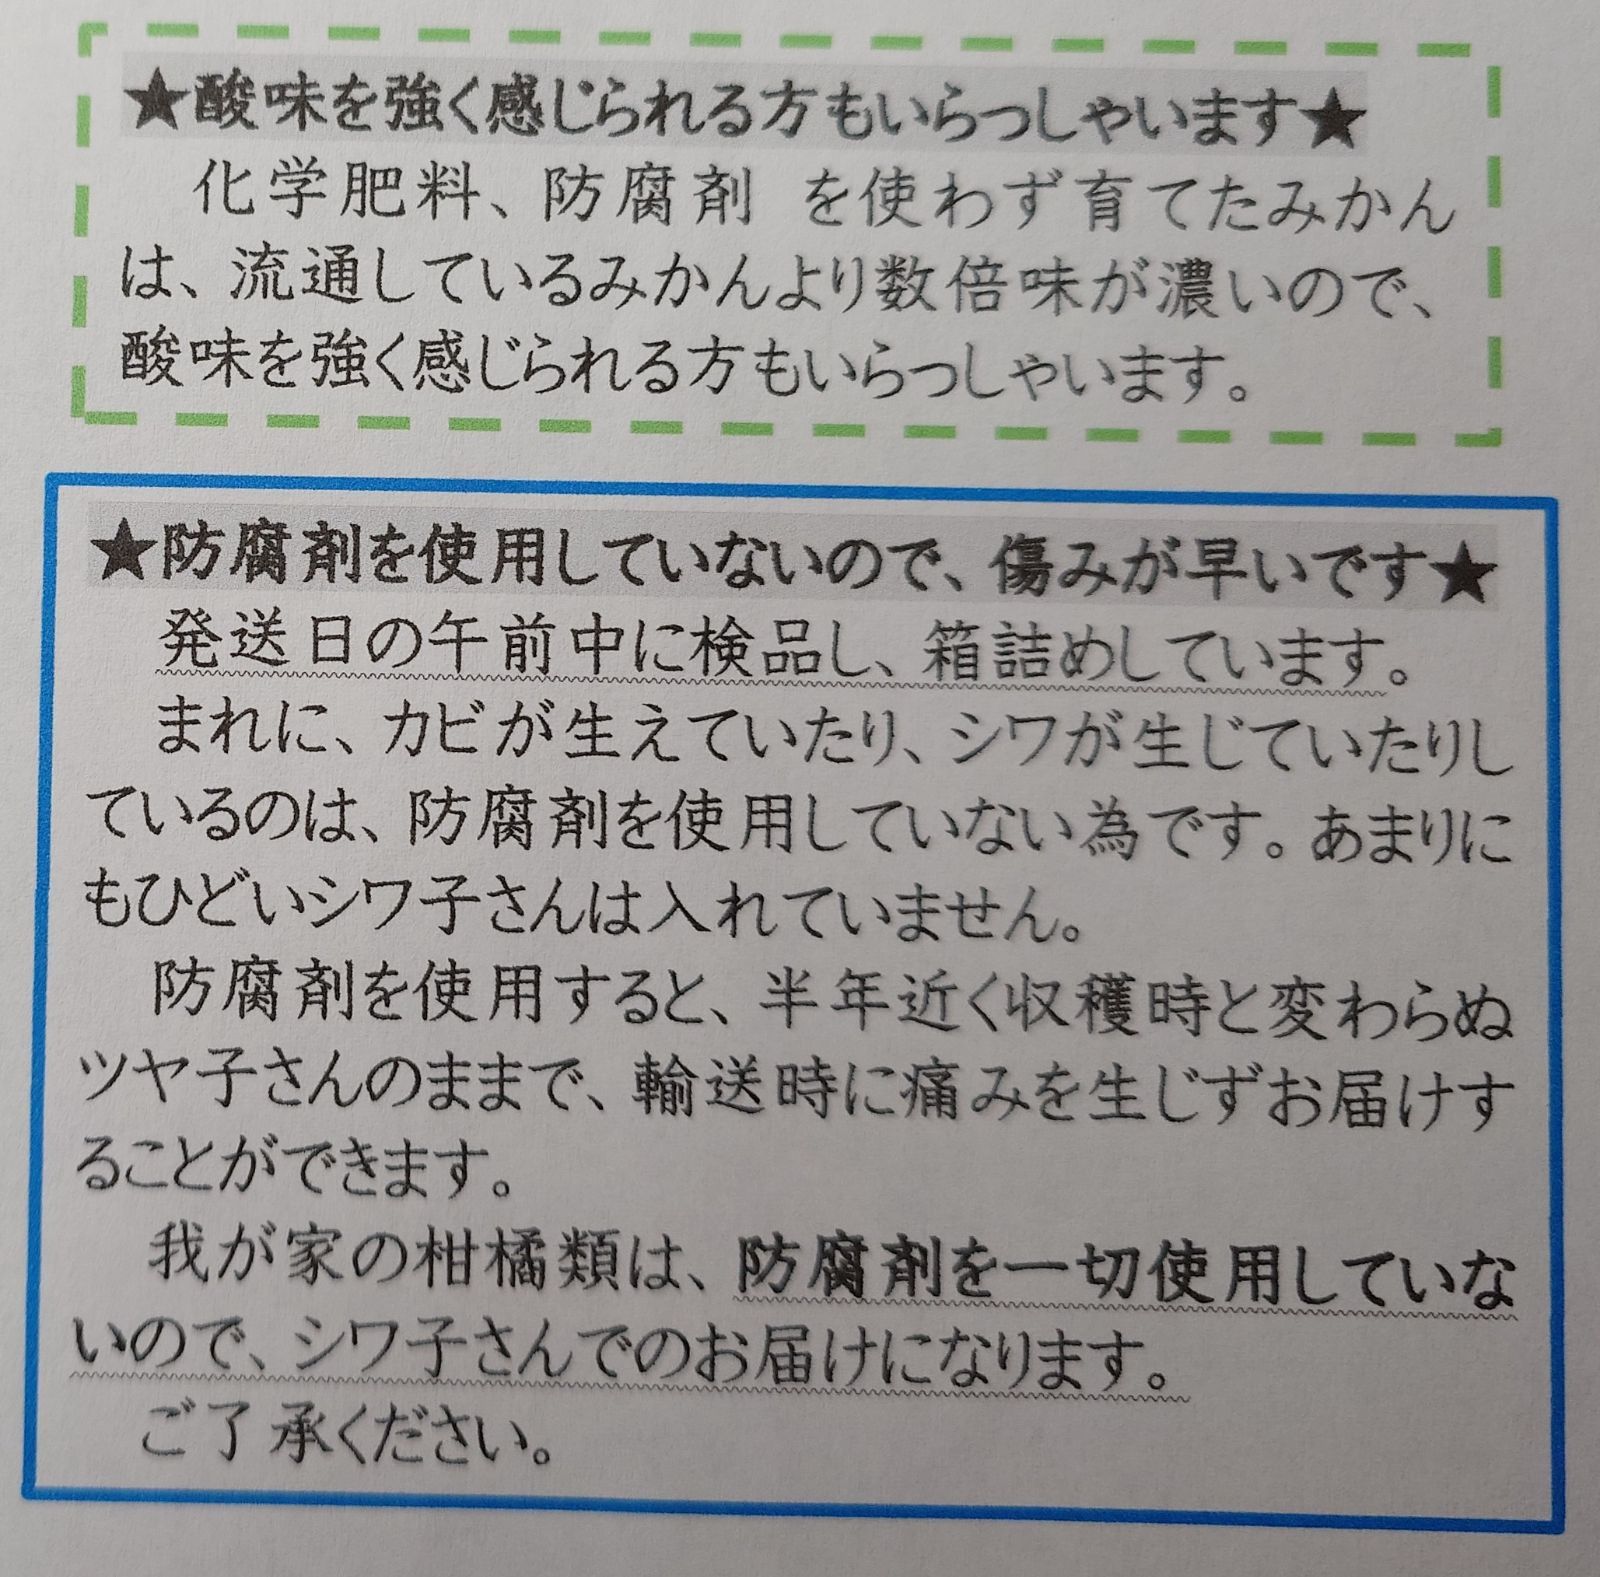 ★酸味を強く感じられる方もいらっしゃいます★
化学肥料、防腐剤 を使わず育てたみかん
は、流通しているみかんより数倍味が濃いので、
酸味を強く感じられる方もいらっしゃいます。
★防腐剤を使用していないので、傷みが早いです★
発送日の午前中に検品し、箱詰めしています。
まれに、カビが生えていたり、シワが生じていたりし
ているのは、防腐剤を使用していない為です。あまりに
もひどいシワ子さんは入れていません。
防腐剤を使用すると、半年近く収穫時と変わらぬ
ツヤ子さんのままで、輸送時に痛みを生じずお届けす
ることができます。
我が家の柑橘類は、防腐剤を一切使用していな
いので、シワ子さんでのお届けになります。
ご了承ください。